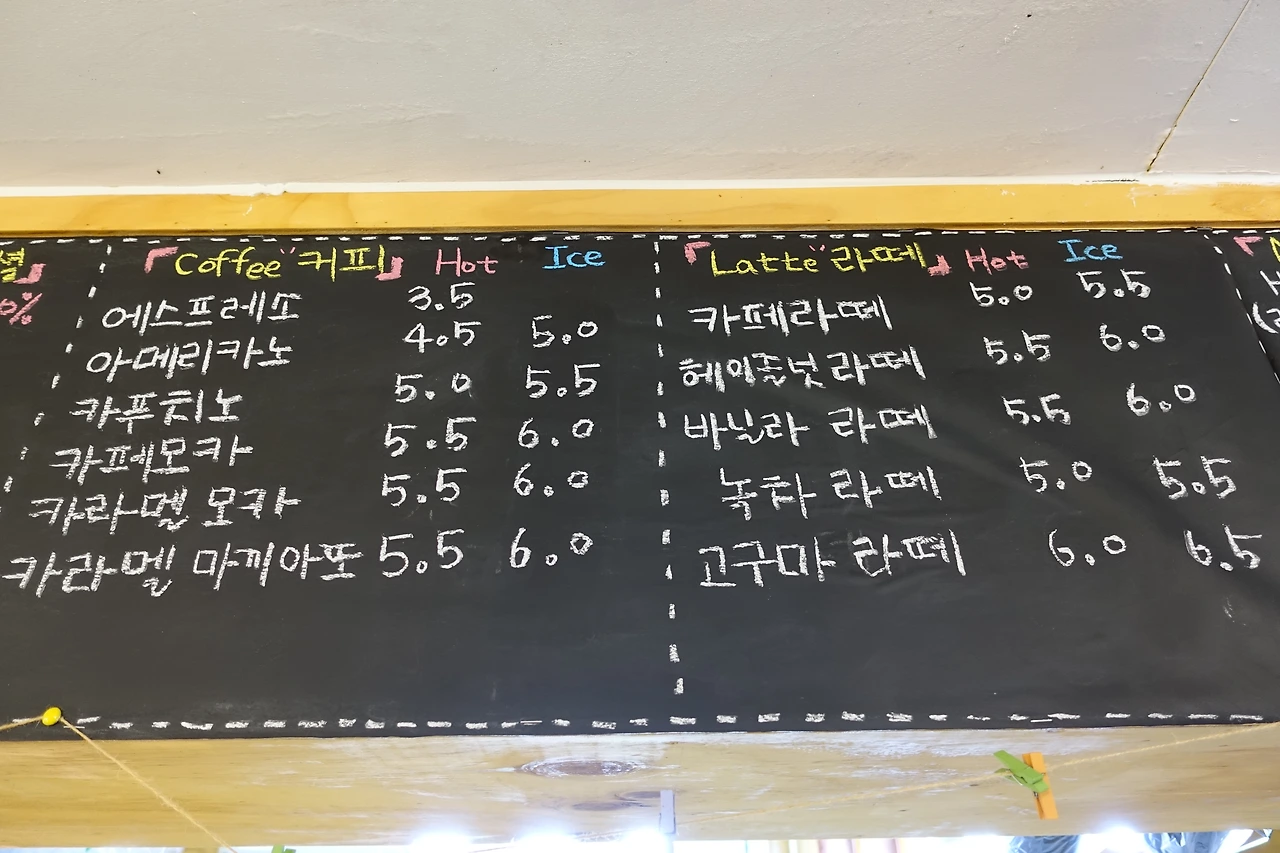 셜」
%
「Coffee" 커피」 Hot Ice
에스프레쏘 3.5
아메리카노 4.5 5.0
카푸치노 5.0 5.5
카페모카 5.5 6.0
카라멜 모카 5.5 6.0
카라멜 마끼아또 5.5 6.0
「Latte" 라떼」 Hot Ice
카페라떼 5.0 5.5
헤이즐넛 라떼 5.5 6.0
바닐라 라떼 5.5 6.0
녹차 라떼 5.0 5.5
고구마 라떼 6.0 6.5